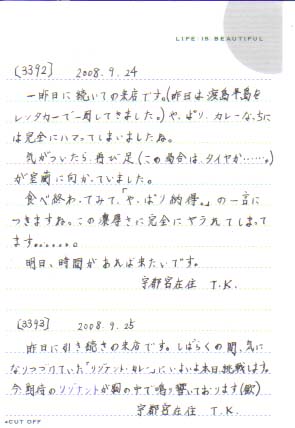 LIFE IS BEAUTIFUL
[3392] 2008.9.24
一昨日に続いての来店です。(昨日は渡島半島を
レンタカーで一周してきました。)やっぱり、カレーならちに
は完全にハマってしまいましたね。
気がついたら、再び足(この場合は、タイヤか……。)
が室蘭に向かっていました。
食べ終わってみて、「やっぱり納得。」の一言に
つきますね。この濃厚さに完全にヤラれてしまって
ます。。。。。。
明日、時間があれば来たいです。
宇都宮在住 T.K.
[3393] 2008.9.25
昨日に引き続きの来店です。しばらくの間、気に
なりつづけていた"リゾナント・カレー"にいよいよ本日、挑戦します。
今朝からリゾナントが胸の中で鳴り響いております(歓)
宇都宮在住 T.K.
CUT OFF